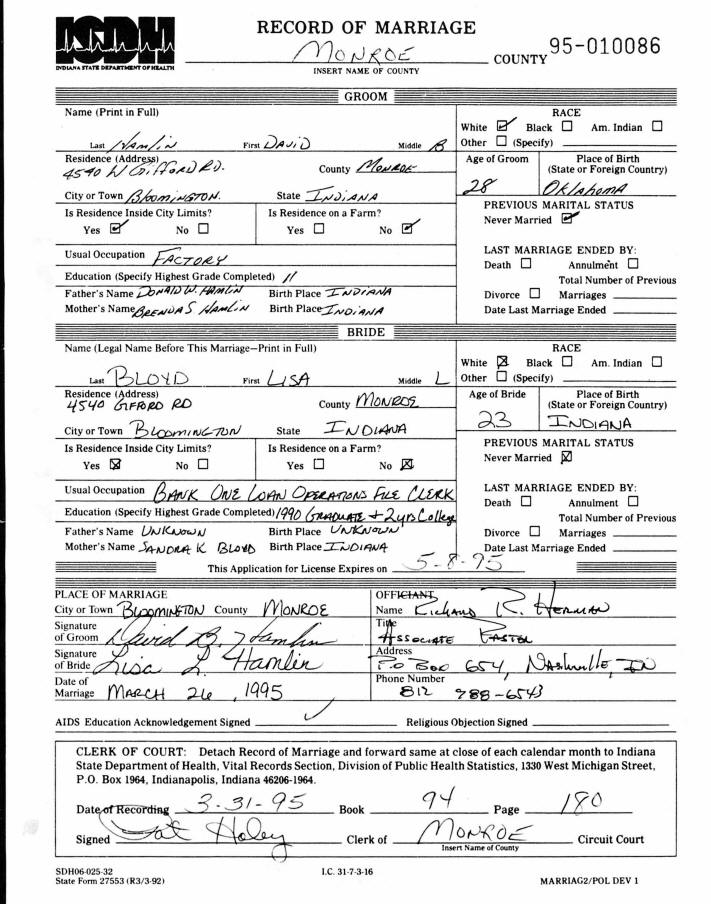 ISDH
INDIANA STATE DEPARTMENT OF HEALTH
RECORD OF MARRIAGE
MONROE COUNTY 95-010086
INSERT NAME OF COUNTY
GROOM
Name (Print in Full)
Last Hamlin First DAVID Middle B
RACE
White ☑ Black ☐ Am. Indian ☐
Other ☐ (Specify)
Residence (Address)
4540 W GIFFORD RD. County MONROE
City or Town Bloomington. State INDIANA
Age of Groom
28
Place of Birth
(State or Foreign Country)
Oklahoma
Is Residence Inside City Limits?
Yes ☑ No ☐
Is Residence on a Farm?
Yes ☐ No ☑
PREVIOUS MARITAL STATUS
Never Married ☑
Usual Occupation FACTORY
Education (Specify Highest Grade Completed) 11
Father's Name DONALD W. HAMLIN Birth Place INDIANA
Mother's Name BRENDA S HAMLIN Birth Place INDIANA
LAST MARRIAGE ENDED BY:
Death ☐ Annulment ☐
Total Number of Previous
Divorce ☐ Marriages
Date Last Marriage Ended
BRIDE
Name (Legal Name Before This Marriage—Print in Full)
Last BLOYD First LISA Middle L
RACE
White ☒ Black ☐ Am. Indian ☐
Other ☐ (Specify)
Residence (Address)
4540 GIFFORD RD County MONROE
City or Town BLOOMINGTON State INDIANA
Age of Bride
23
Place of Birth
(State or Foreign Country)
INDIANA
Is Residence Inside City Limits?
Yes ☒ No ☐
Is Residence on a Farm?
Yes ☐ No ☒
PREVIOUS MARITAL STATUS
Never Married ☒
Usual Occupation BANK ONE LOAN OPERATIONS FILE CLERK
Education (Specify Highest Grade Completed) 1990 GRADUATE + 2 yrs College
Father's Name UNKNOWN Birth Place UNKNOWN
Mother's Name SANDRA K BLOYD Birth Place INDIANA
LAST MARRIAGE ENDED BY:
Death ☐ Annulment ☐
Total Number of Previous
Divorce ☐ Marriages
Date Last Marriage Ended
This Application for License Expires on 5-8-95
PLACE OF MARRIAGE
City or Town BLOOMINGTON County MONROE
Signature
of Groom David B. Hamlin
Signature
of Bride Lisa L. Hamlin
Date of
Marriage MARCH 26, 1995
OFFICIANT
Name Richard R. HERMAN
Title
ASSOCIATE PASTOR
Address
PO Box 654, Nashville, IN
Phone Number
812 988-6543
AIDS Education Acknowledgement Signed ✓ Religious Objection Signed
CLERK OF COURT: Detach Record of Marriage and forward same at close of each calendar month to Indiana
State Department of Health, Vital Records Section, Division of Public Health Statistics, 1330 West Michigan Street,
P.O. Box 1964, Indianapolis, Indiana 46206-1964.
Date of Recording 3-31-95 Book 94 Page 180
Signed Pat Haley Clerk of MONROE Circuit Court
Insert Name of County
SDH06-025-32
State Form 27553 (R3/3-92)
I.C. 31-7-3-16
MARRIAG2/POL DEV 1